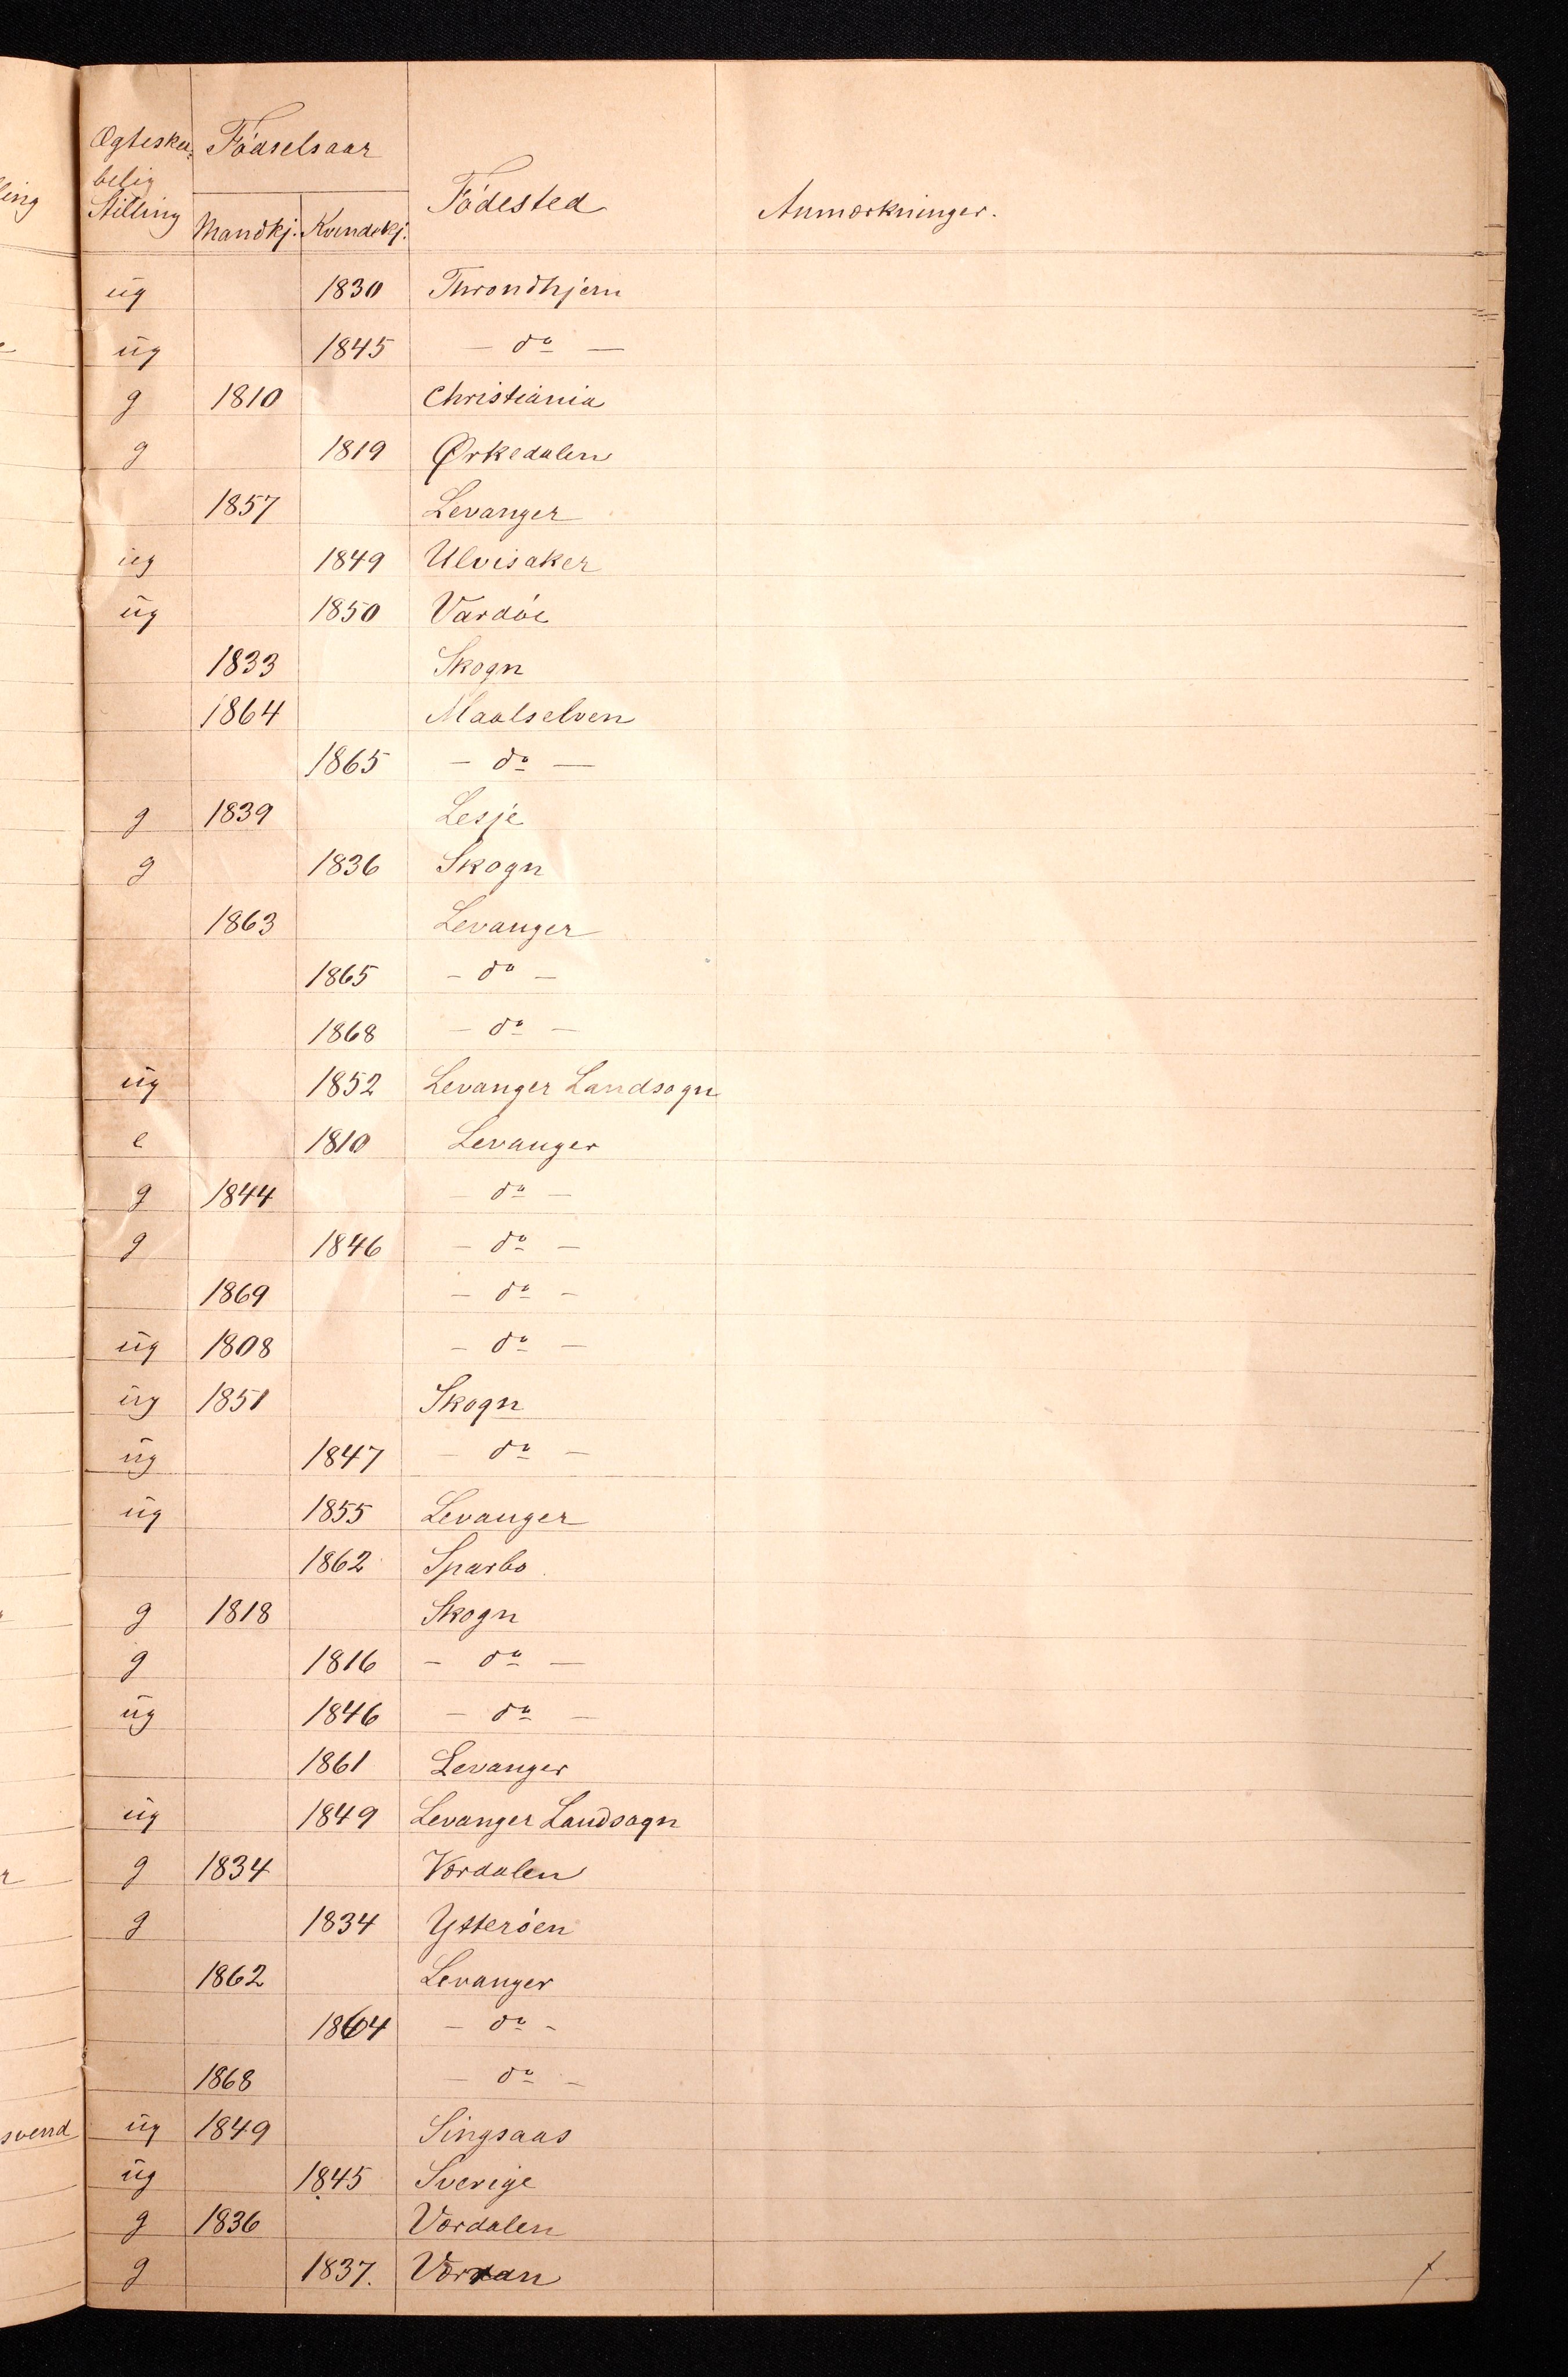 Ægteska= Fødselsaar
belig
Stilling Mandkj. Kvindekj. Fødested Anmærkninger.
ug 1830 Throndhjem
ug 1845 — do —
g 1810 Christiania
g 1819 Ørkedalen
1857 Levanger
ug 1849 Ulvisaker
ug 1850 Vardøe
1833 Skogn
1864 Maalselven
1865 — do —
g 1839 Lesje
g 1836 Skogn
1863 Levanger
1865 — do —
1868 — do —
ug 1852 Levanger Landsogn
e 1810 Levanger
g 1844 — do —
g 1846 — do —
1869 — do —
ug 1808 — do —
ug 1851 Skogn
ug 1847 — do —
ug 1855 Levanger
1862 Sparbo
g 1818 Skogn
g 1816 — do —
ug 1846 — do —
1861 Levanger
ug 1849 Levanger Landsogn
g 1834 Værdalen
g 1834 Ytterøen
1862 Levanger
1864 — do —
1868 — do —
svend ug 1849 Singsaas
ug 1845 Sverige
g 1836 Værdalen
g 1837.